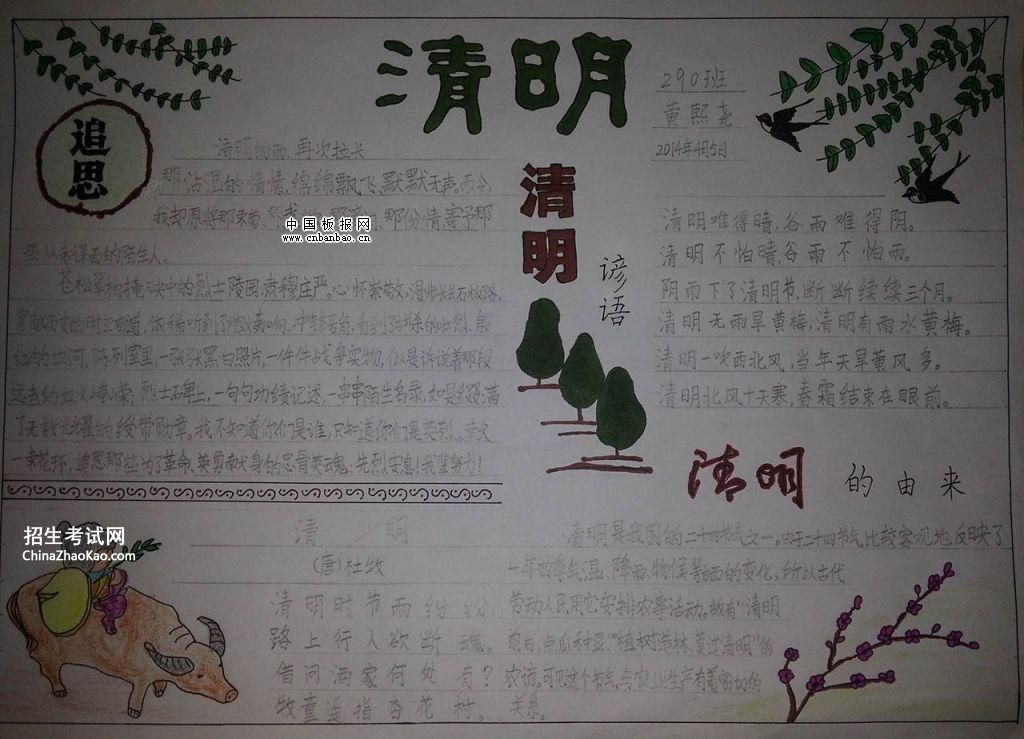 清明
290班
黄熙尧
2014年4月5日
追思
清明的雨,再次拉长
那沾湿的情愫,缤绵飘飞,默默无声。而今,
我却原将那束菊、那份情寄予那
中国板报网
www.cnbanbao.cn
些从未谋面的陌生人。
苍松翠柏掩映中的烈士陵园,肃穆庄严。心怀崇敬,漫步长长石板路,
依稀听到了
红的血河。陈列室里,一张张黑白照片,一件件战争实物,似是诉说着那段
远去的血火峥嵘;烈士石碑上,一句句功绩记述,一串串陌生名录,如是缀满
了无数光耀的绶带勋章。我不知道你们是谁,只知道你们是英烈。献
一束花环,追思那些为了革命,英勇献身的忠骨英魂。先烈安息!我辈努力!
清明
谚语
清明难得晴,谷雨难得阴。
清明不怕晴,谷雨不怕雨。
阴雨下了清明节,断断续续三个月。
清明无雨旱黄梅,清明有雨水黄梅。
清明一吹西北风,当年天旱黄风多。
清明北风十天寒,春霜结束在眼前。
清明的由来
清明是我国的二十四节气之一。由于二十四节气比较客观地反映了
一年四季气温、降雨、物候等方面的变化,所以古代
劳动人民用它安排农事活动。故有“清明
前后,点瓜种豆”“植树造林,莫过清明”的
农谚。可见这个节气与农业生产有着密切的
关系。
清明
(唐)杜牧
清明时节雨纷纷,
路上行人欲断魂。
借问酒家何处有?
牧童遥指杏花村。
招生考试网
ChinaZhaoKao.com